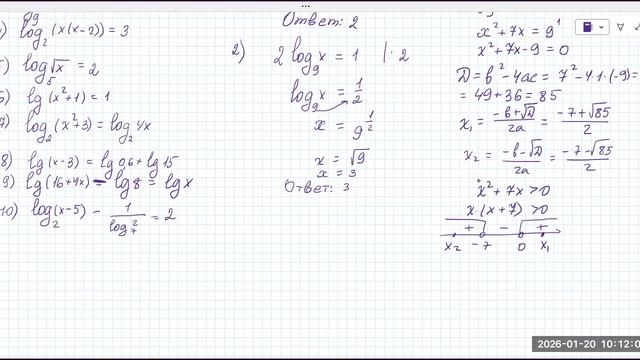 log₂(x(x-2)) = 3
log₅√x = 2
lg(x²+1) = 1
7) log₂(x²+3) = log₂4x
8) lg(x-3) = lg 0,6 + lg 15
9) lg(16+4x) - lg 8 = lg x
10) log₂(x-5) - 1/log₇2 = 2
Ответ: 2
2) 2 log₉x = 1 |: 2
log₉x = 1/2
x = 9^(1/2)
x = √9
x = 3
Ответ: 3
x² + 7x = 9¹
x² + 7x - 9 = 0
D = b² - 4ac = 7² - 4·1·(-9) =
= 49 + 36 = 85
x₁ = (-b+√D)/2a = (-7+√85)/2
x₂ = (-b-√D)/2a = (-7-√85)/2
x² + 7x > 0
x(x+7) > 0
+ - +
x₂ -7 0 x₁
2026-01-20 10:12:0